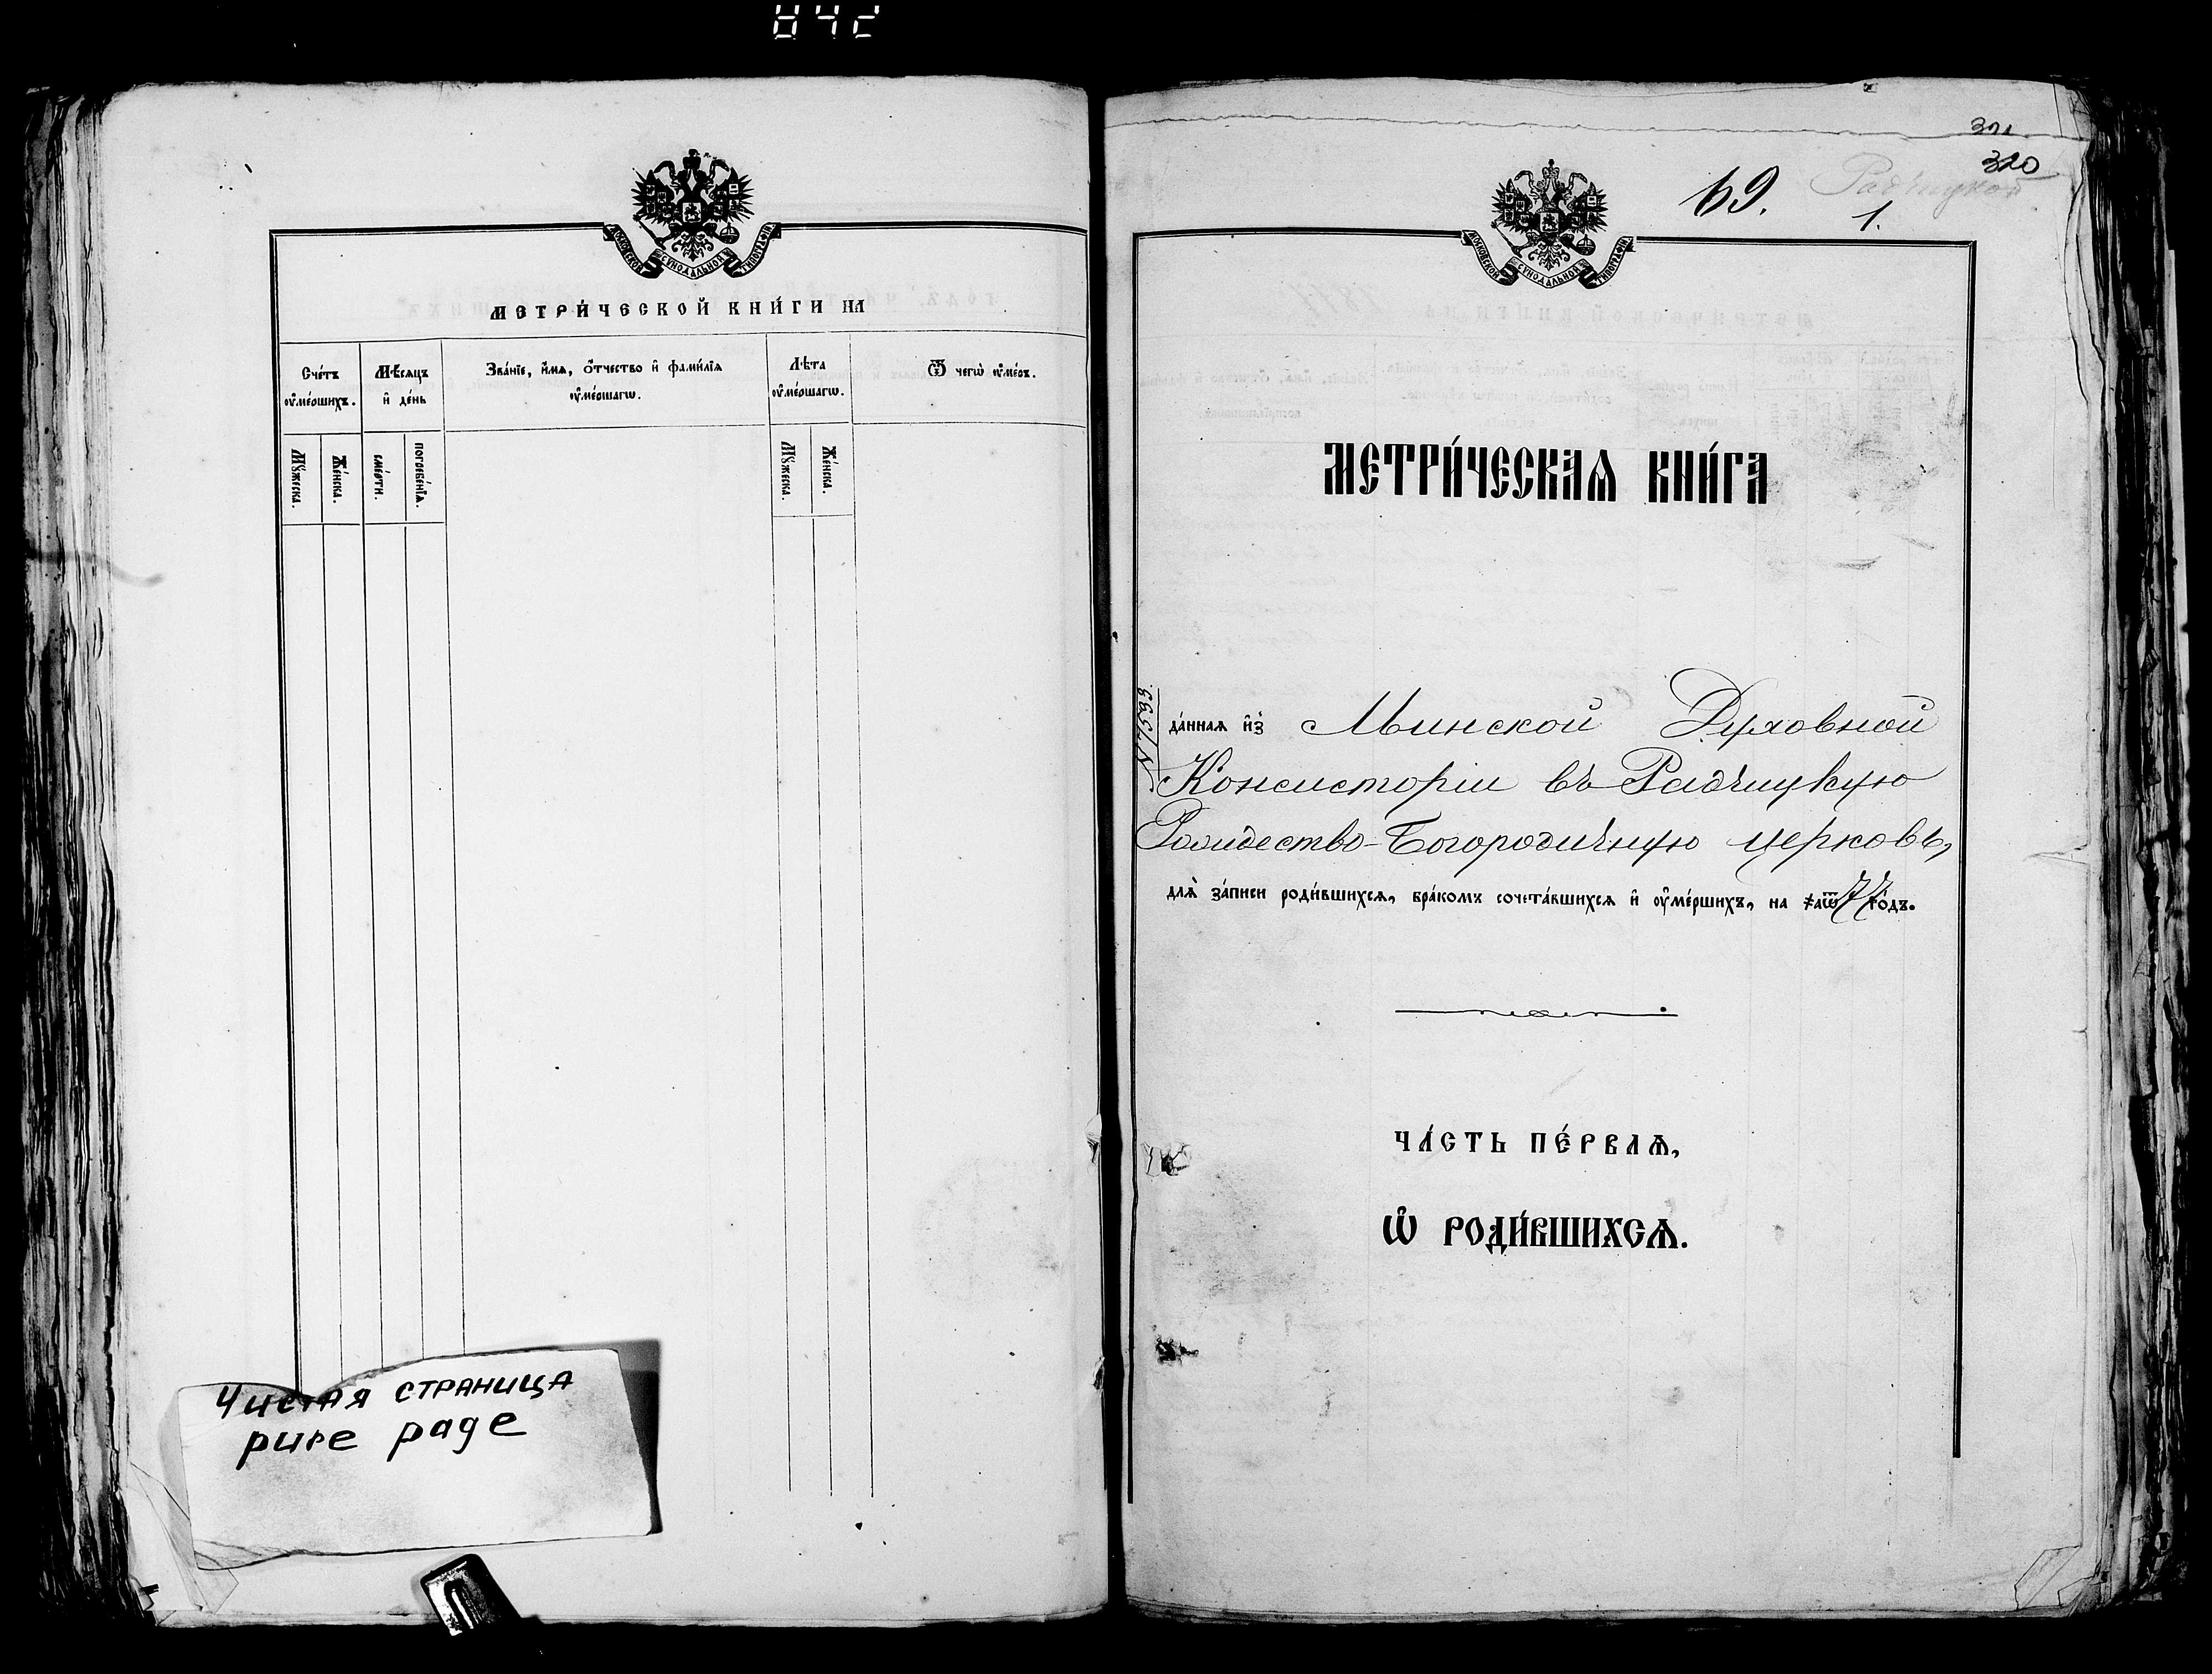 МОСКОВСКОЙ СѴНОДАЛЬНОЙ ТИПОГРАФІИ
МЕТРИ́ЧЕСКОЙ КНИ́ГИ НА
Сче́тъ ᲂу҆ме́ршихъ.
Мѣ́сяцъ и҆ де́нь
Зва́нїе, и҆́мѧ, ѻ҆́тчество и҆ фами́лїѧ ᲂу҆ме́ршагѡ.
Лѣ́та ᲂу҆ме́ршагѡ.
Ѿ чегѡ̀ ᲂу҆́меръ.
Мꙋ́жеска.
Же́нска.
сме́рти.
погребе́нїѧ.
Мꙋ́жеска.
Же́нска.
Чистая страница
pure page
320
69.
Радчицкой
1.
МОСКОВСКОЙ СѴНОДАЛЬНОЙ ТИПОГРАФІИ
МЕТРИ́ЧЕСКАѦ КНИ́ГА
да́ннаѧ и҆з̾ Минской Духовной
Консисторіи въ Радчицкую
Рождество-Богородичную церковь,
длѧ̀ за́писи роди́вшихсѧ, бра́комъ сочета́вшихсѧ и҆ ᲂу҆ме́ршихъ, на ҂аѿ77 го́дъ.
ЧА́СТЬ ПЕ́РВАѦ,
Ѡ҆ РОДИ́ВШИХСѦ.